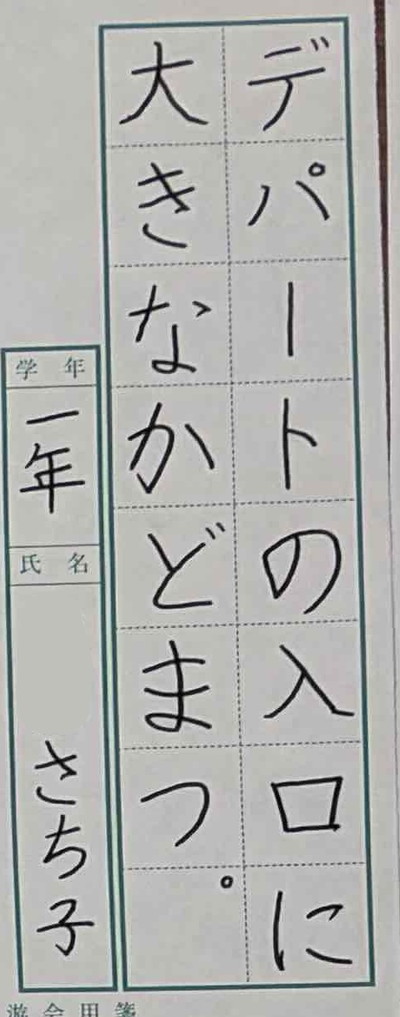 デパートの入口に
大きなかどまつ。
学年
一年
氏名
さち子